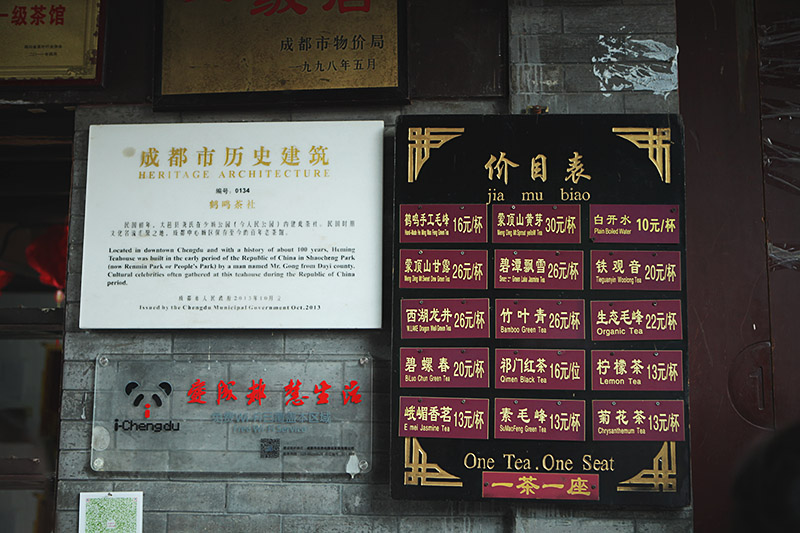 一级茶馆
成都市物价局
一九九八年五月
成都市历史建筑
HERITAGE ARCHITECTURE
编号：0134
鹤鸣茶社
Located in downtown Chengdu and with a history of about 100 years, Heming
Teahouse was built in the early period of the Republic of China in Shaocheng Park
(now Renmin Park or People's Park) by a man named Mr. Gong from Dayi county.
Cultural celebrities often gathered at this teahouse during the Republic of China
period.
成都市人民政府2013年10月立
Issued by the Chengdu Municipal Government Oct.2013
i-Chengdu
爱成都 慧生活
Free Wi-Fi Service
价目表
jia mu biao
鹤鸣手工毛峰 16元/杯
蒙顶山黄芽 30元/杯
白开水 10元/杯
Plain Boiled Water
蒙顶山甘露 26元/杯
碧潭飘雪 26元/杯
铁观音 20元/杯
Tieguanyin Woolong Tea
西湖龙井 26元/杯
竹叶青 26元/杯
生态毛峰 22元/杯
W.LAKE Dragon Well Green Tea
Bamboo Green Tea
Organic Tea
碧螺春 20元/杯
祁门红茶 16元/位
柠檬茶 13元/杯
BiLuo Chun Green Tea
Qimen Black Tea
Lemon Tea
峨嵋香茗 13元/杯
素毛峰 13元/杯
菊花茶 13元/杯
E mei Jasmine Tea
SuMaoFeng Green Tea
Chrysanthemum Tea
One Tea . One Seat
一茶一座